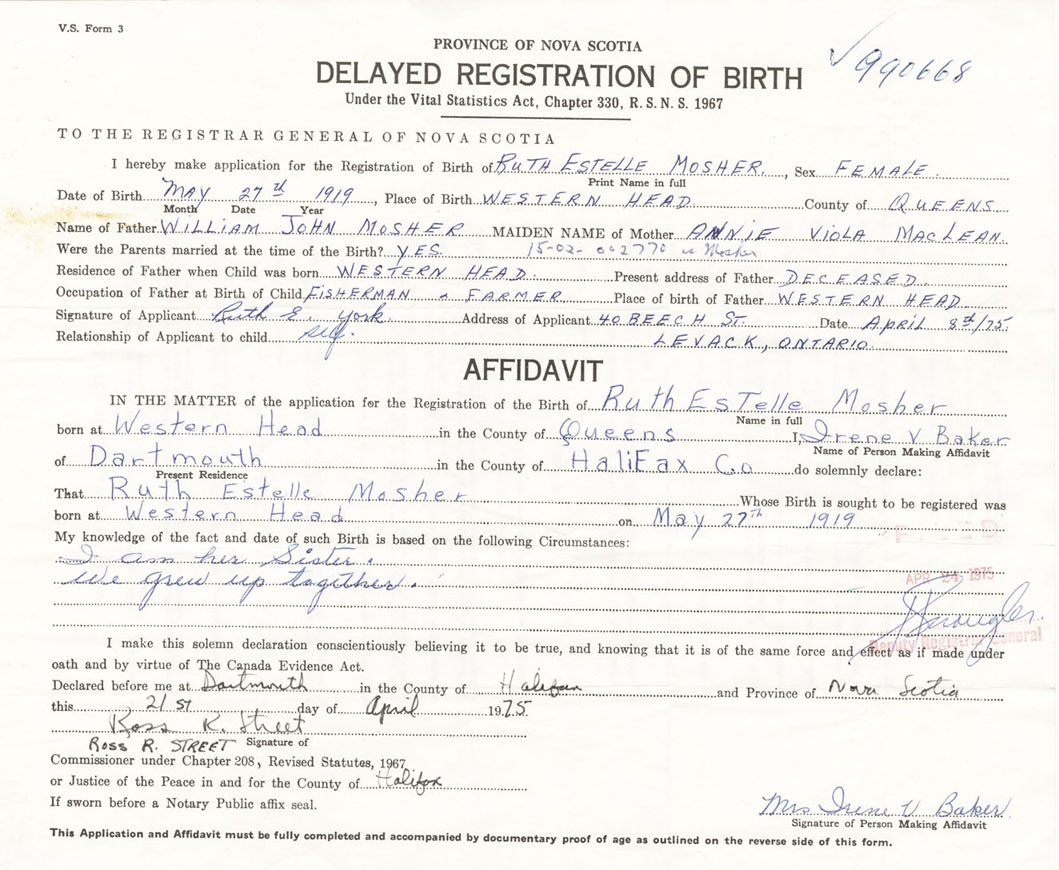 V.S. Form 3
PROVINCE OF NOVA SCOTIA
✓990668
DELAYED REGISTRATION OF BIRTH
Under the Vital Statistics Act, Chapter 330, R.S.N.S. 1967
TO THE REGISTRAR GENERAL OF NOVA SCOTIA
I hereby make application for the Registration of Birth of RUTH ESTELLE MOSHER., Sex FEMALE.
Print Name in full
Date of Birth MAY 27th 1919, Place of Birth WESTERN HEAD County of QUEENS
Month Date Year
Name of Father WILLIAM JOHN MOSHER MAIDEN NAME of Mother ANNIE VIOLA MACLEAN.
Were the Parents married at the time of the Birth? YES. 15-02-002770 Mosher
Residence of Father when Child was born WESTERN HEAD. Present address of Father DECEASED.
Occupation of Father at Birth of Child FISHERMAN & FARMER Place of birth of Father WESTERN HEAD
Signature of Applicant Ruth E. York Address of Applicant 40 BEECH ST. Date April 8th/75.
Relationship of Applicant to child self. LEVACK, ONTARIO.
AFFIDAVIT
IN THE MATTER of the application for the Registration of the Birth of Ruth EsTelle Mosher
Name in full
born at Western Head in the County of Queens I, Irene V Baker
Name of Person Making Affidavit
of Dartmouth in the County of HaliFax Co do solemnly declare:
Present Residence
That Ruth Estelle Mosher Whose Birth is sought to be registered was
born at Western Head on May 27th 1919
My knowledge of the fact and date of such Birth is based on the following Circumstances:
I am her Sister.
We grew up together.
APR 24 1975
Deputy Registrar General
I make this solemn declaration conscientiously believing it to be true, and knowing that it is of the same force and effect as if made under
oath and by virtue of The Canada Evidence Act.
Declared before me at Dartmouth in the County of Halifax and Province of Nova Scotia
this 21st day of April 1975
Ross R. Street
ROSS R. STREET Signature of
Commissioner under Chapter 208, Revised Statutes, 1967
or Justice of the Peace in and for the County of Halifax
If sworn before a Notary Public affix seal.
Mrs Irene V Baker
Signature of Person Making Affidavit
This Application and Affidavit must be fully completed and accompanied by documentary proof of age as outlined on the reverse side of this form.